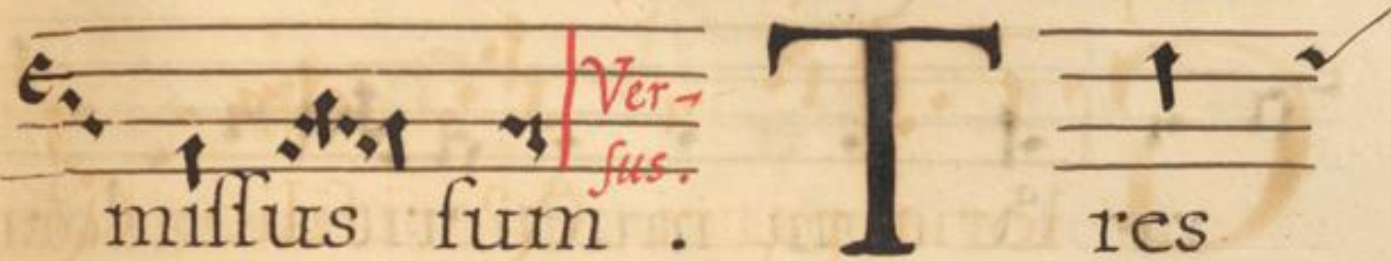 Ver-
sus.
miſſus ſum . Tres